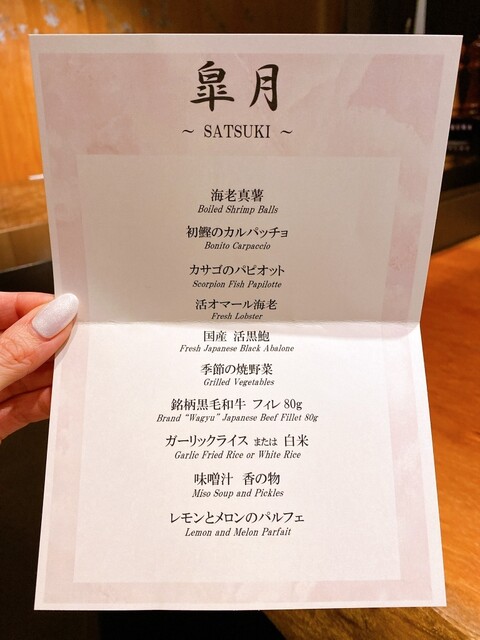 皐月
～ SATSUKI ～
海老真薯
Boiled Shrimp Balls
初鰹のカルパッチョ
Bonito Carpaccio
カサゴのパピオット
Scorpion Fish Papilotte
活オマール海老
Fresh Lobster
国産 活黒鮑
Fresh Japanese Black Abalone
季節の焼野菜
Grilled Vegetables
銘柄黒毛和牛 フィレ 80g
Brand “Wagyu” Japanese Beef Fillet 80g
ガーリックライス または 白米
Garlic Fried Rice or White Rice
味噌汁 香の物
Miso Soup and Pickles
レモンとメロンのパルフェ
Lemon and Melon Parfait